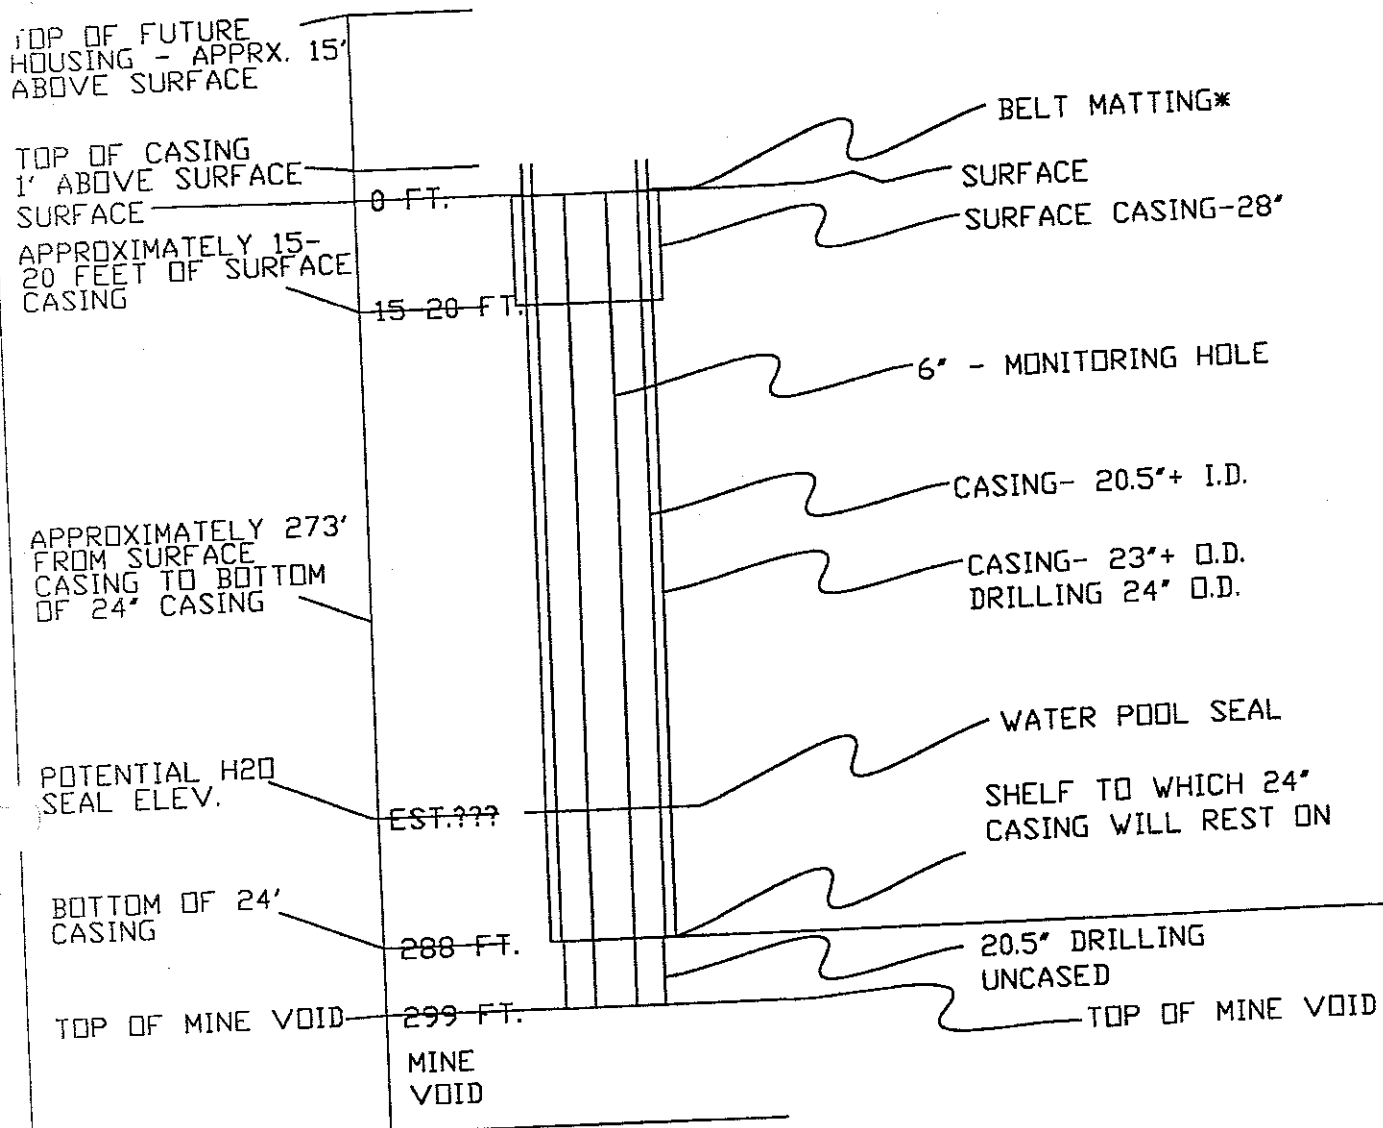 TOP OF FUTURE
HOUSING - APPRX. 15'
ABOVE SURFACE
TOP OF CASING
1' ABOVE SURFACE
SURFACE
0 FT.
APPROXIMATELY 15-
20 FEET OF SURFACE
CASING
15-20 FT.
APPROXIMATELY 273'
FROM SURFACE
CASING TO BOTTOM
OF 24" CASING
POTENTIAL H2O
SEAL ELEV.
EST.???
BOTTOM OF 24'
CASING
288 FT.
TOP OF MINE VOID
299 FT.
MINE
VOID
BELT MATTING*
SURFACE
SURFACE CASING-28"
6" - MONITORING HOLE
CASING- 20.5"+ I.D.
CASING- 23"+ O.D.
DRILLING 24" O.D.
WATER POOL SEAL
SHELF TO WHICH 24"
CASING WILL REST ON
20.5" DRILLING
UNCASED
TOP OF MINE VOID